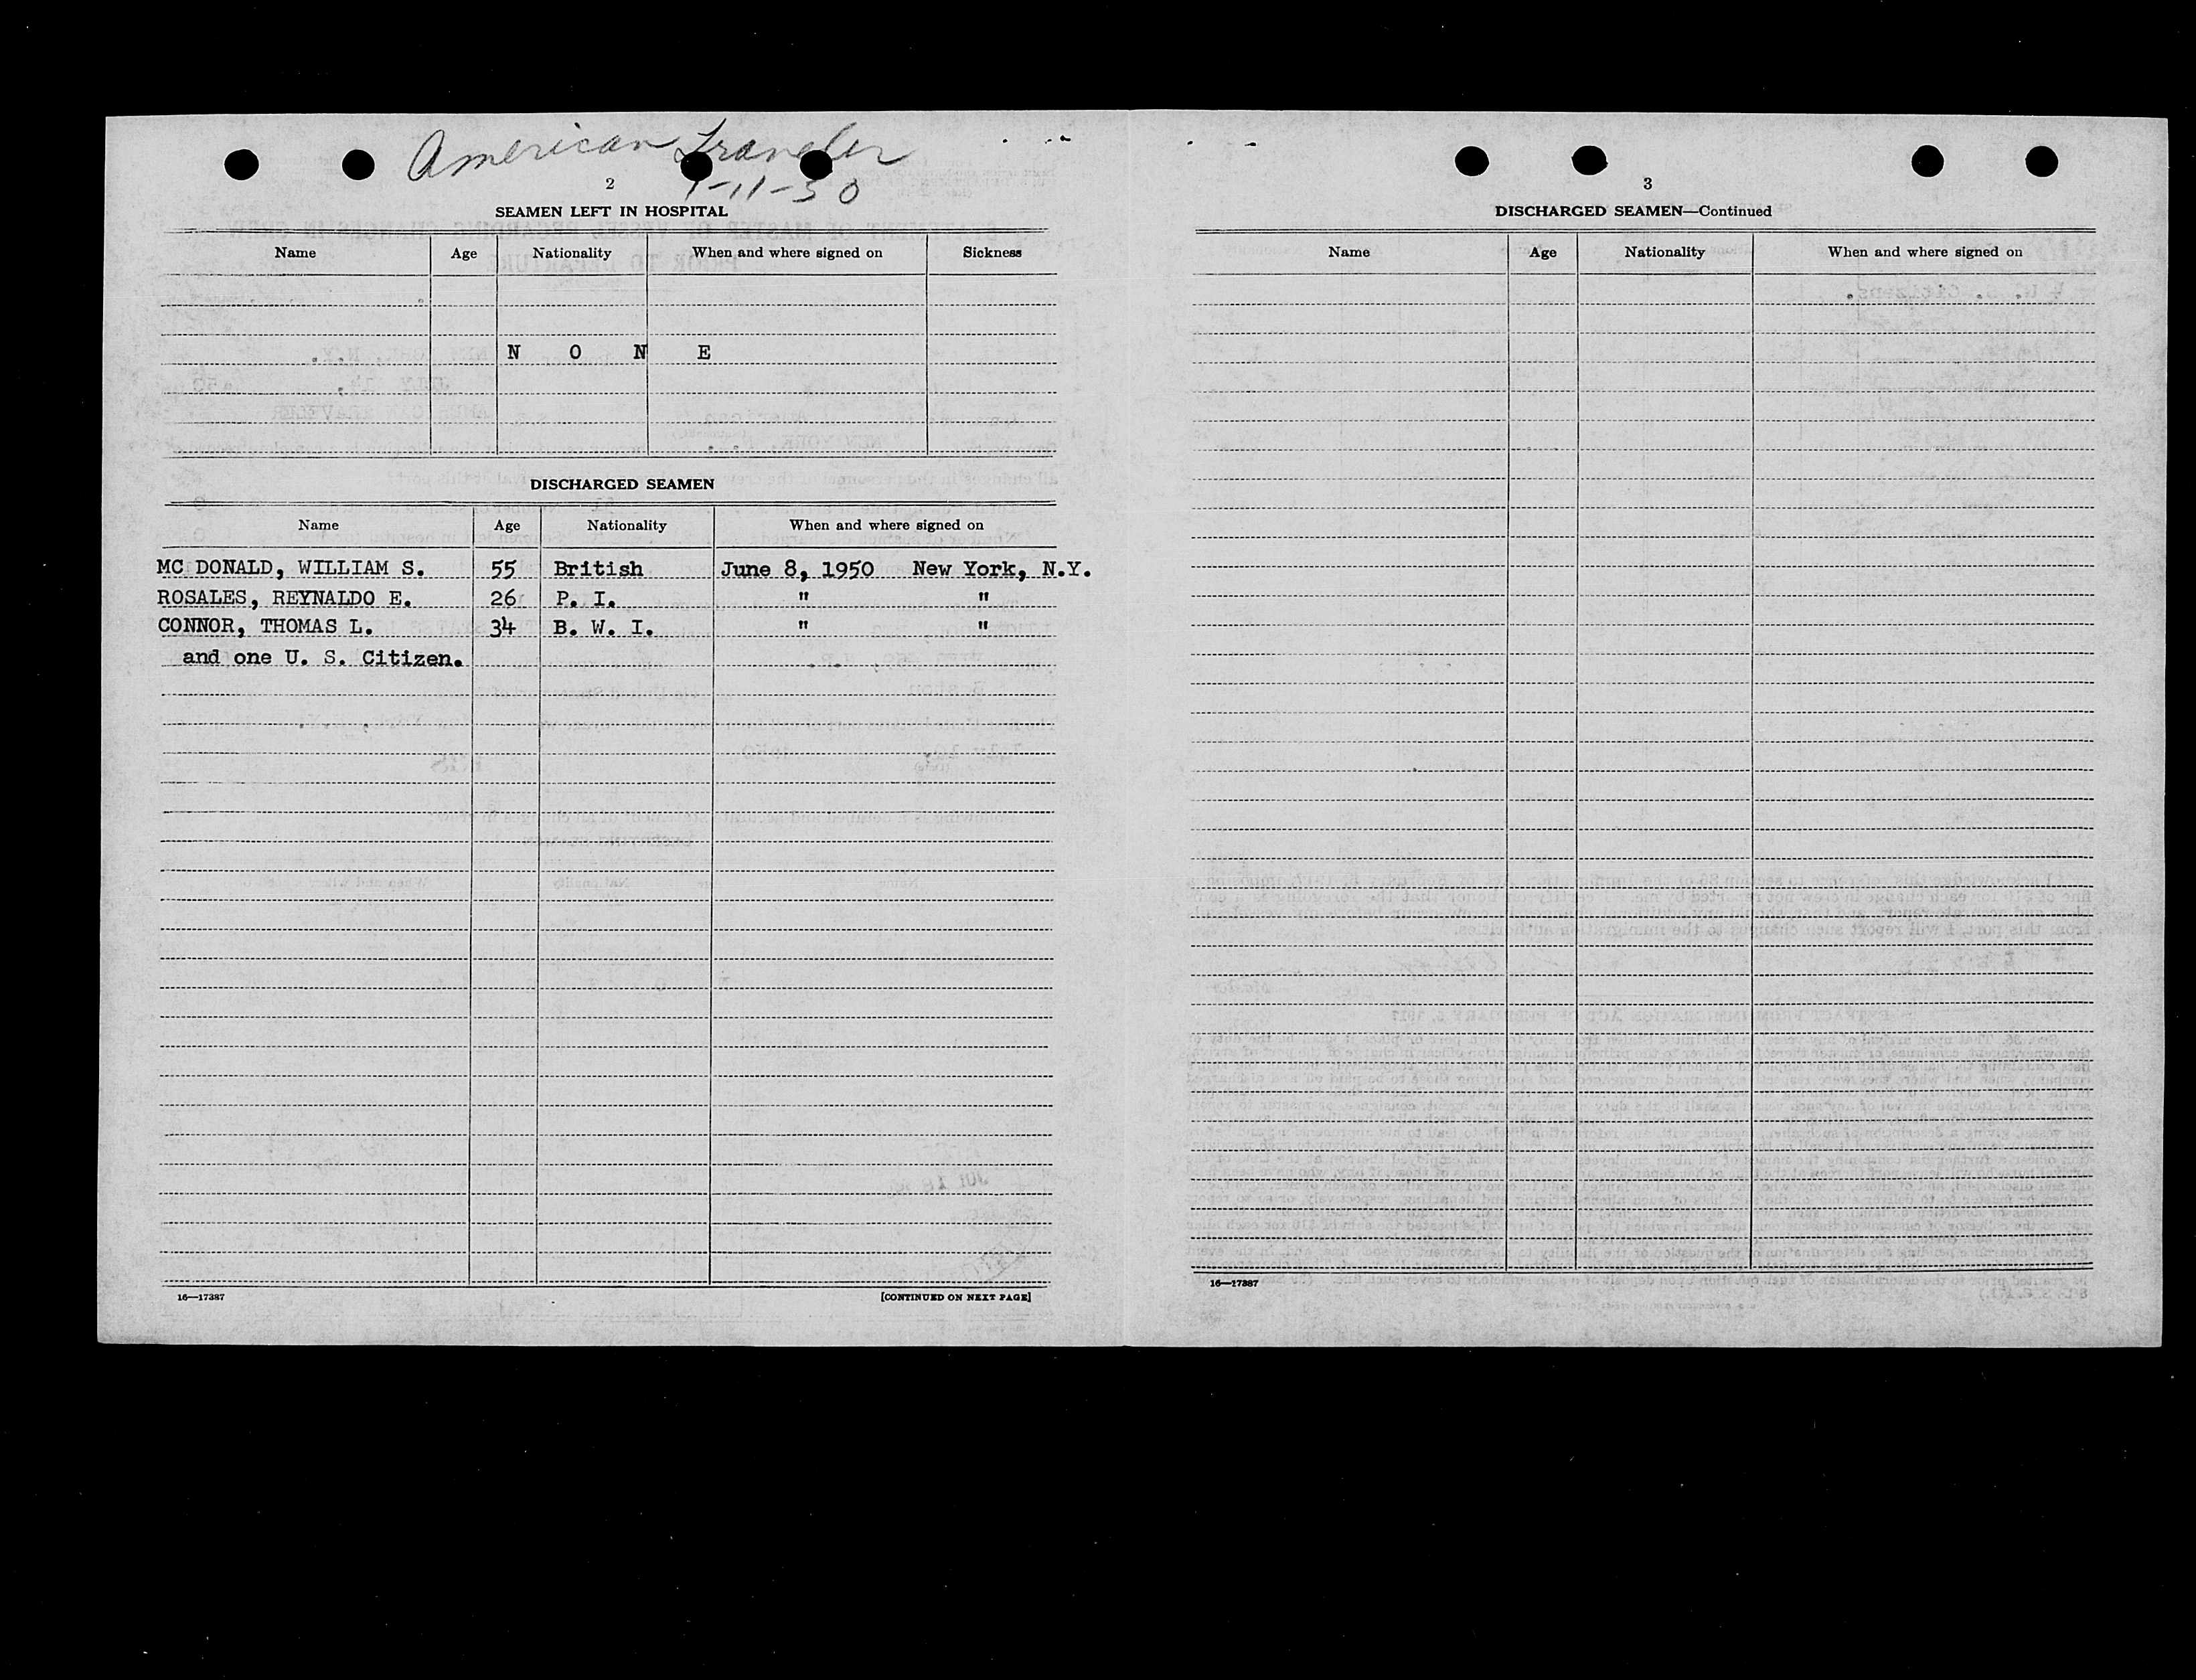 American Traveler
2
7-11-50
SEAMEN LEFT IN HOSPITAL
Name Age Nationality When and where signed on Sickness
N O N E
DISCHARGED SEAMEN
Name Age Nationality When and where signed on
MC DONALD, WILLIAM S. 55 British June 8, 1950 New York, N.Y.
ROSALES, REYNALDO E. 26 P. I. " "
CONNOR, THOMAS L. 34 B. W. I. " "
and one U. S. Citizen.
16—17387 [CONTINUED ON NEXT PAGE]
3
DISCHARGED SEAMEN—Continued
Name Age Nationality When and where signed on
16—17387